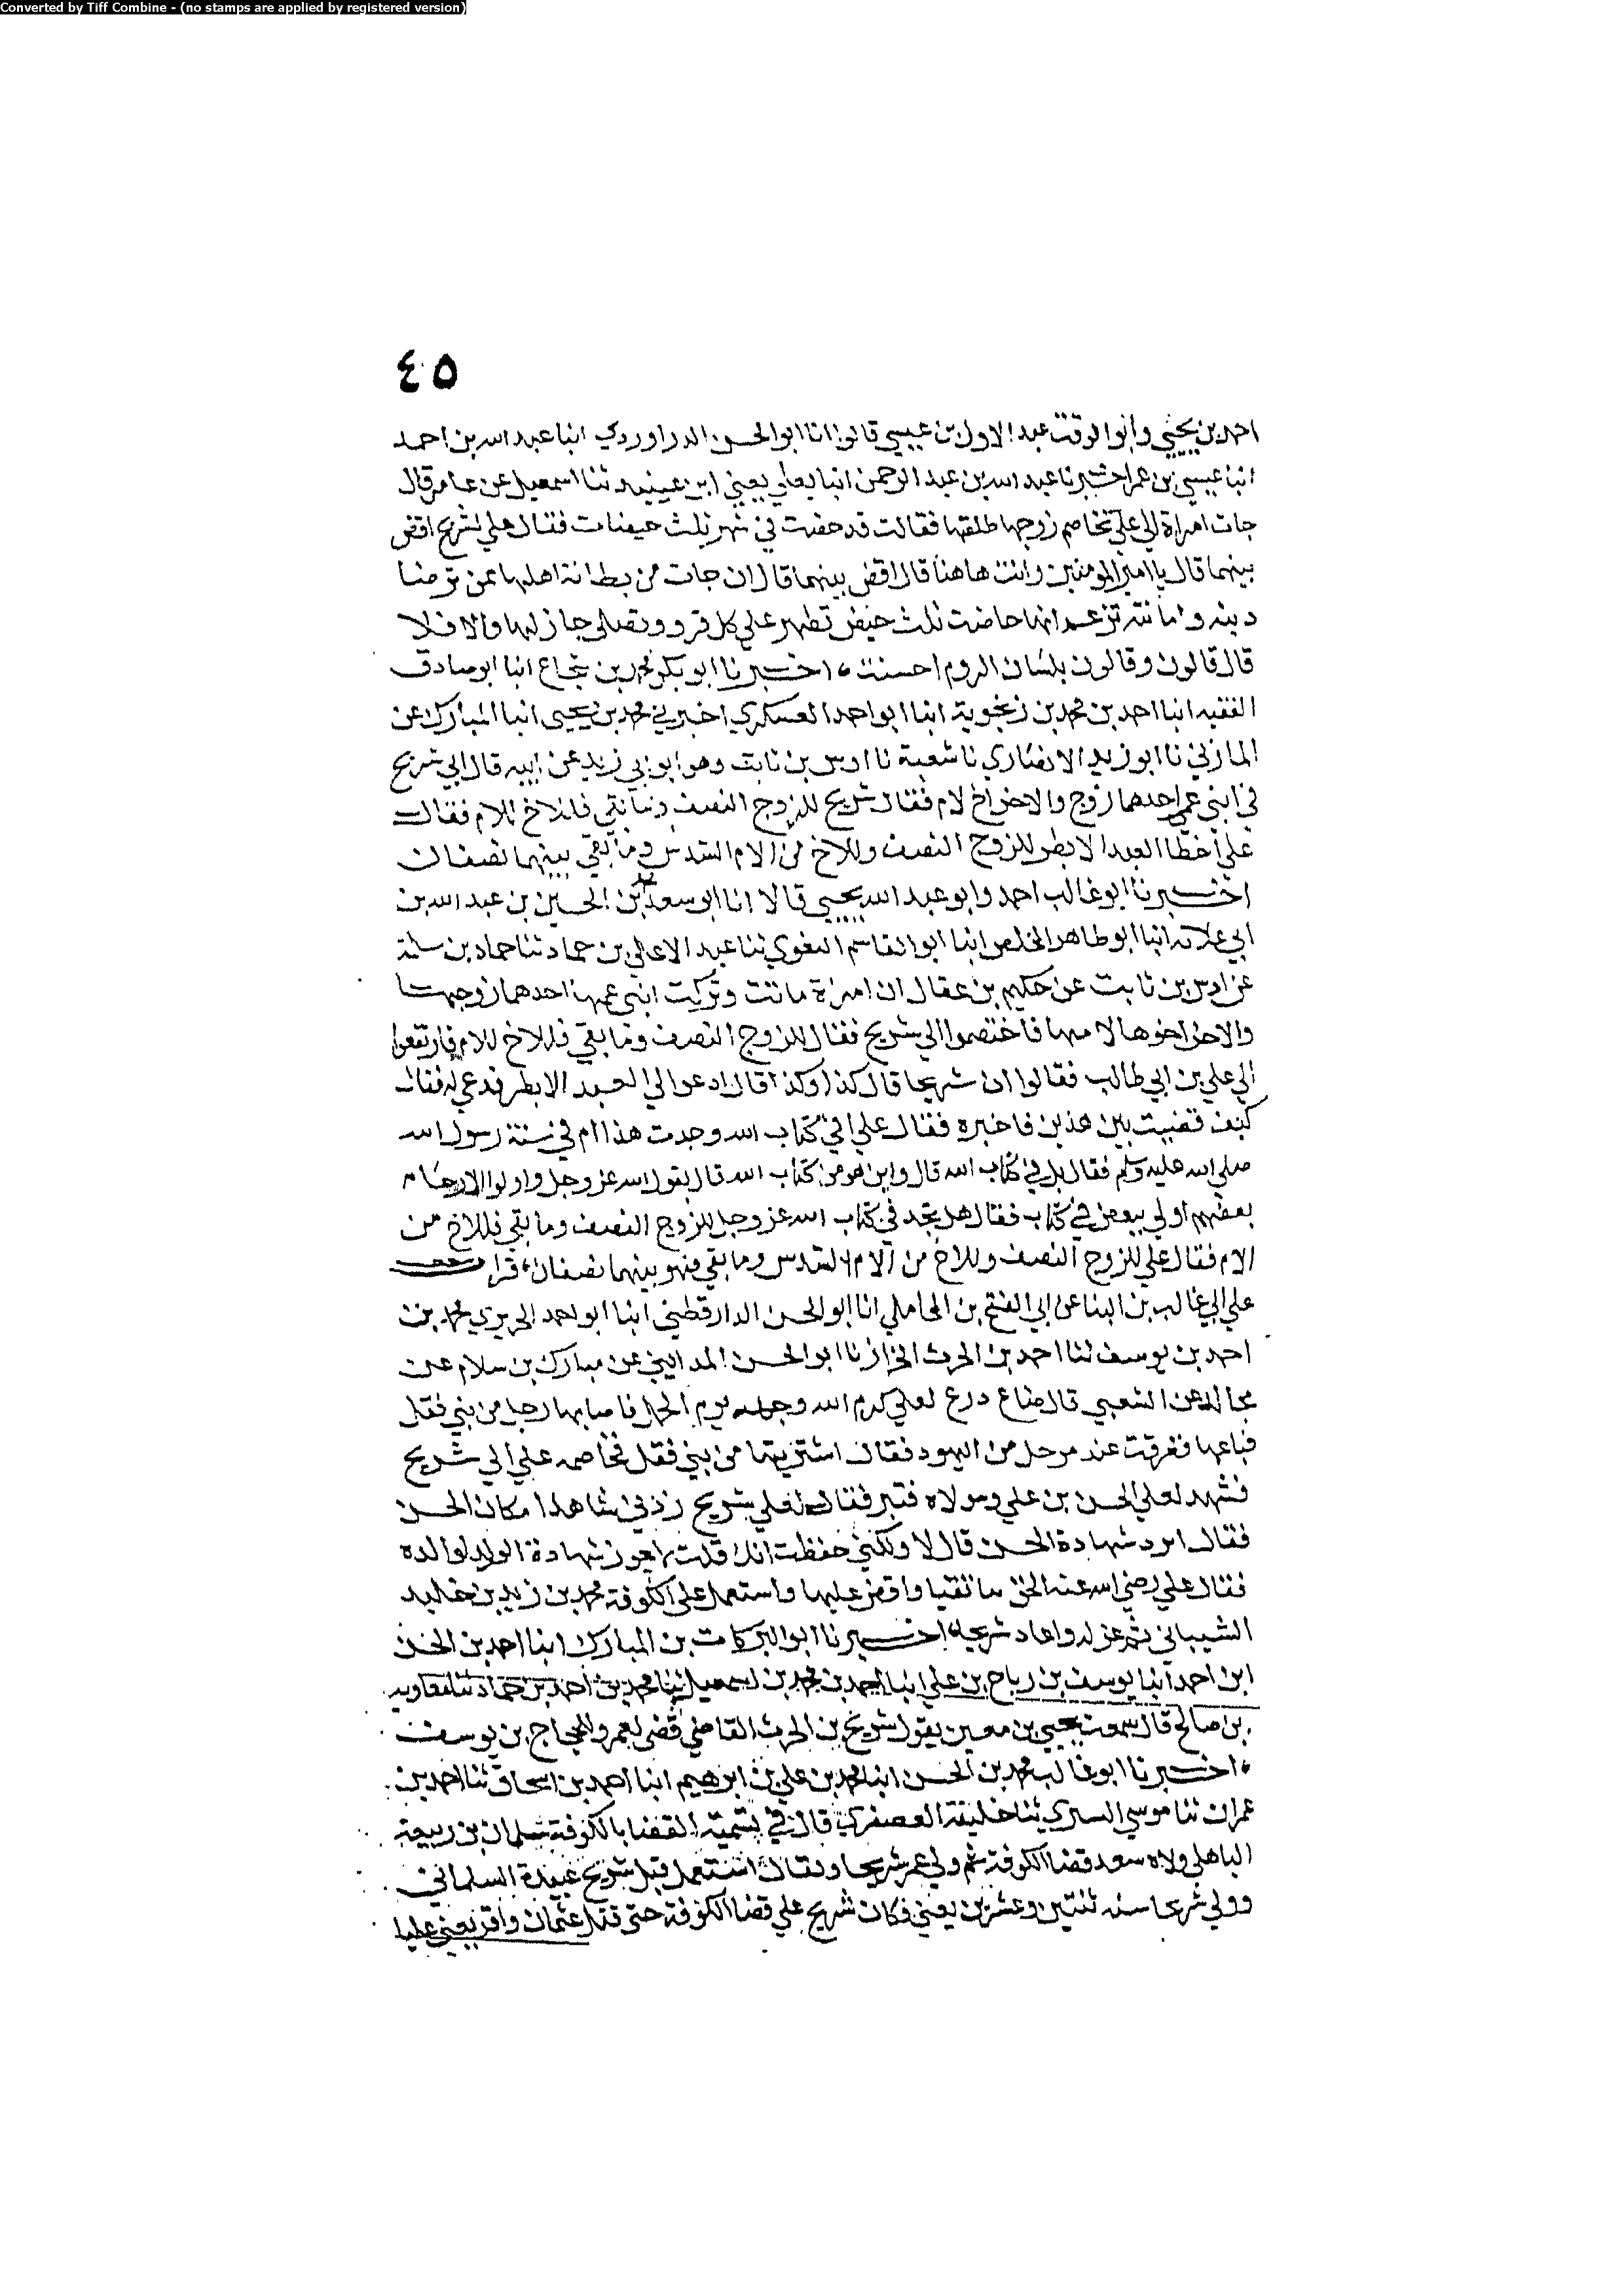 Converted by Tiff Combine - (no stamps are applied by registered version)
٤٥
احمد بن يحيي وابوالوقت عبد الاول بن عيسي قالوا انا ابوالحسن الدراوردي انبا عبد الله بن احمد
انبا عيسي بن عمر اخبرنا عبد الله بن عبد الرحمن انبا يعلي يعني ابن عيينه ثنا اسمعيل عن عامر قال
جات امراة الي علي تخاصم زوجها طلقها فقالت قد حضت في شهر ثلث حيضات فقال علي لشريح اقض
بينهما قال يا امير المومنين وانت هاهنا قال اقض بينهما قال ان جات من بطانة اهلها ممن ترضا
دينه وامانته تزعم انها حاضت ثلث حيض تطهر علي كل قرو وتصلي جاز لها والا فلا
قال قالون وقالون بلسان الروم احسنت اخبرنا ابو بكر محمد بن شجاع انبا ابو صادق
الفقيه انبا احمد بن محمد بن زنجوية انبا ابو احمد العسكري اخبرني محمد بن يحيى انبا المبارك عن
المازني نا ابو زيد الانصاري نا شعبة نا اوس بن ثابت وهو ابو ابي زيد عن ابيه قال ابي شريح
في ابني عم احدهما زوج والاخر اخ لام فقال شريح للزوج النصف وما بقي فللاخ للام فقال
علي اخطا العبد الابظر للزوج النصف وللاخ من الام السدس وما بقي بينهما نصفان
اخبرنا ابو غالب احمد وابو عبد الله يحيي قالا انا ابو سعد بن الحسين بن عبد الله بن
ابي علانه انبا ابو طاهر المخلص انبا ابو القاسم البغوي ثنا عبد الاعلي بن حماد ثنا حماد بن سلمة
عن اوس بن ثابت عن حكيم بن عقال ان امراة ماتت وتركت ابني عمها احدهما زوجها
والاخر اخوها لامها فاختصموا الي شريح فقال للزوج النصف وما بقي فللاخ للام فارتفعوا
الي علي بن ابي طالب فقالوا ان شريحا قال كذا وكذا قال ادعوا لي العبد الابظر فدعي له فقال
كيف قضيت بين هذين فاخبره فقال علي افي كتاب الله وجدت هذا ام في سنة رسول الله
صلي الله عليه وسلم فقال بل في كتاب الله قال واين هو من كتاب الله قال يقول الله عز وجل واولوا الارحام
بعضهم اولي ببعض في كتاب فقال هل تجد في كتاب الله عز وجل للزوج النصف وما بقي فللاخ من
الام فقال علي للزوج النصف وللاخ من الام السدس وما بقي فهو بينهما نصفان قرات
علي ابي غالب بن البنا عن ابي الفتح بن المحاملي انا ابو الحسن الدارقطني انبا ابو احمد الجريري محمد بن
احمد بن يوسف ثنا احمد بن الحرث الخزاز نا ابو الحسن المدايني عن مبارك بن سلام عن
مجالد عن الشعبي قال ضاع درع لعلي كرم الله وجهه يوم الجمل فاصابها رجل من بني فقل
فباعها فعرفت عند رجل من اليهود فقال اشتريتها من بني فقل فخاصمه علي الي شريح
فشهد لعلي الحسن بن علي ومولاه قنبر فقال لعلي شريح زدني شاهدا مكان الحسن
فقال اترد شهادة الحسن قال لا ولكني حفظت انك قلت لا يجوز شهادة الولد لوالده
فقال علي رضي الله عنه الحق واقض عليها واستعمل علي الكوفة محمد بن زيد بن خليد
الشيباني ثم عزله واعاد شريحا اخبرنا ابو البركات بن المبارك انبا احمد بن الحسن
ابن احمد انبا يوسف بن رباح بن علي انبا احمد بن محمد بن اسمعيل ثنا محمد بن احمد بن حماد ثنا معاويه
بن صالح قال سمعت يحيي بن معين يقول شريح بن الحرث القاضي قضى لعمر وللحجاج بن يوسف
اخبرنا ابو غالب محمد بن الحسن انبا محمد بن علي بن ابرهيم انبا احمد بن اسحاق ثنا احمد بن
عمران ثنا موسي السري ثنا خليفة العصفري قال في تسمية القضا بالكوفة سلمان بن ربيعة
الباهلي ولاه سعد قضا الكوفة ثم ولي عمر شريحا ويقال استعمل قبل شريح عبيدة السلماني
وولي شريحا سنه ثنتين وعشرين يعني فكان شريح علي قضا الكوفة حتى قتل عثمان واقر يعني عليا